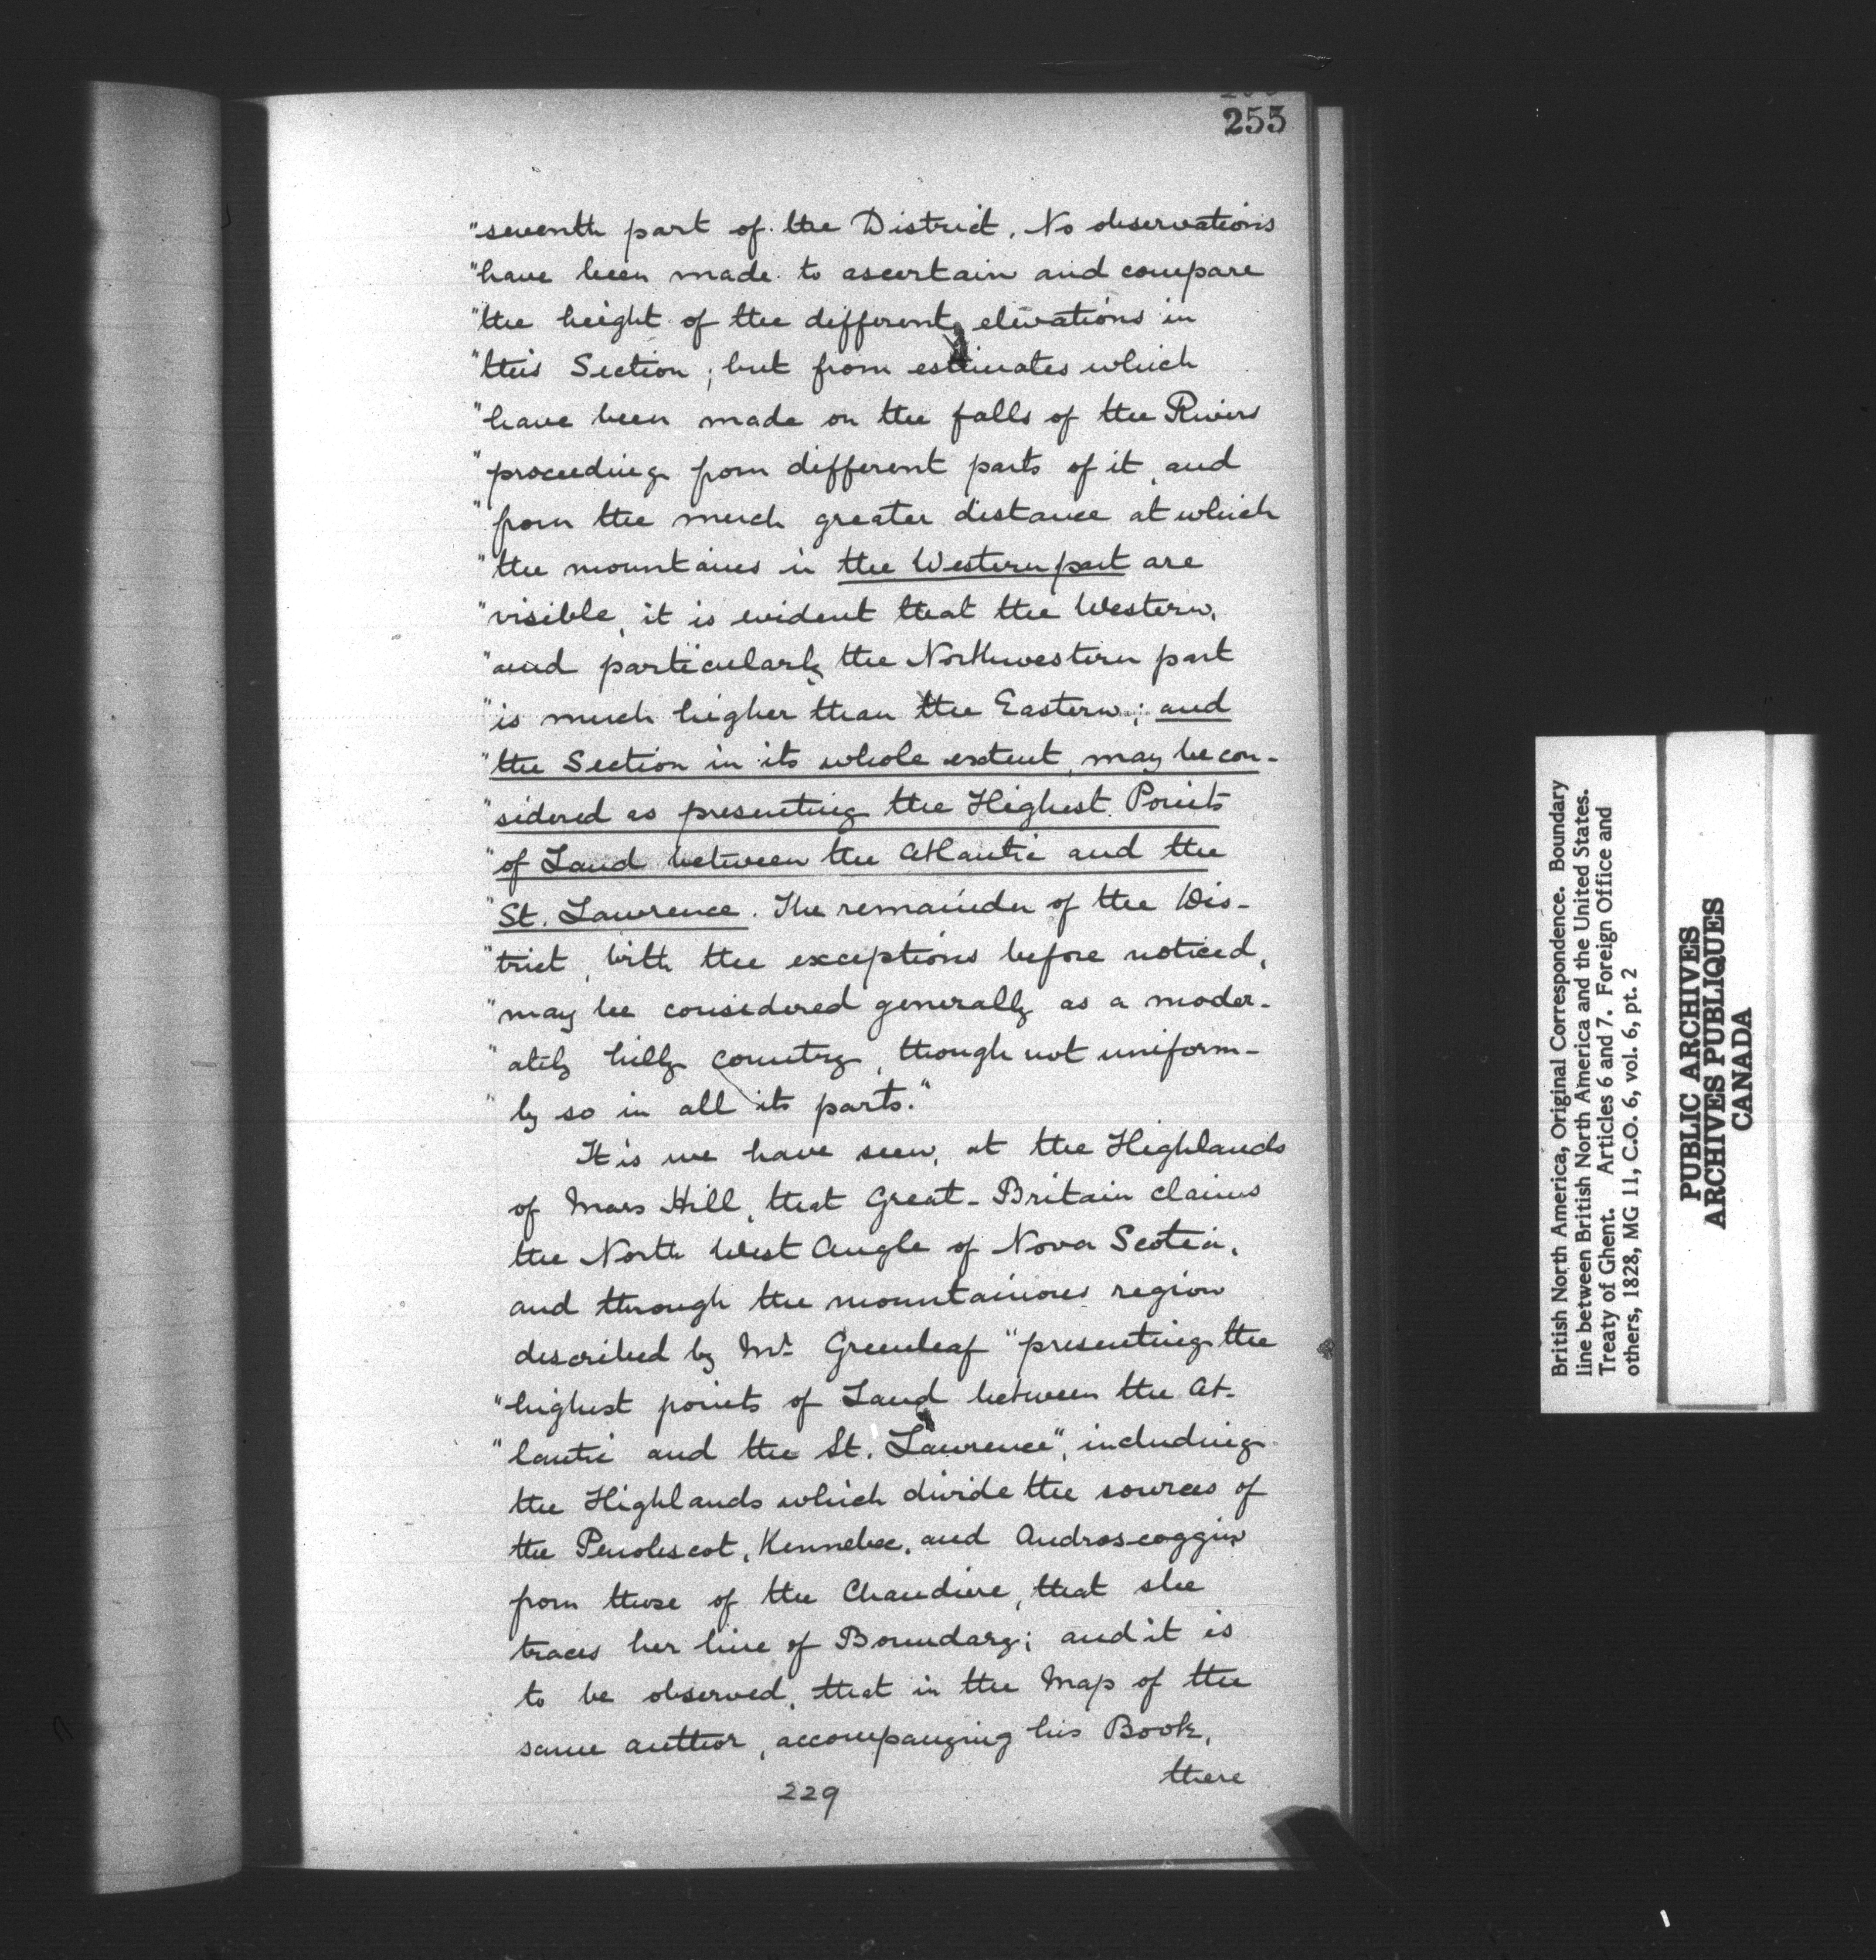 255
"seventh part of the District. No observations
"have been made to ascertain and compare
"the height of the different elevations in
"this Section; but from estimates which
"have been made on the falls of the Rivers
"proceeding from different parts of it, and
"from the much greater distance at which
"the mountains in the Western part are
"visible, it is evident that the Western,
"and particularly the Northwestern part
"is much higher than the Eastern; and
"the Section in its whole extent, may be con-
"sidered as presenting the Highest Points
"of Land between the Atlantic and the
"St. Lawrence. The remainder of the Dis-
"trict, with the exceptions before noticed,
"may be considered generally as a moder-
"ately hilly country, though not uniform-
"ly so in all its parts."
It is we have seen, at the Highlands
of Mars Hill, that Great-Britain claims
the North West Angle of Nova Scotia,
and through the mountainous region
described by Mr. Greenleaf "presenting the
"highest points of Land between the At-
"lantic and the St. Lawrence", including
the Highlands which divide the sources of
the Penobscot, Kennebec, and Androscoggin
from those of the Chaudiere, that she
traces her line of Boundary; and it is
to be observed, that in the Map of the
same author, accompanying his Book,
there
229
British North America, Original Correspondence. Boundary
line between British North America and the United States.
Treaty of Ghent. Articles 6 and 7. Foreign Office and
others, 1828, MG 11, C.O. 6, vol. 6, pt. 2
PUBLIC ARCHIVES
ARCHIVES PUBLIQUES
CANADA